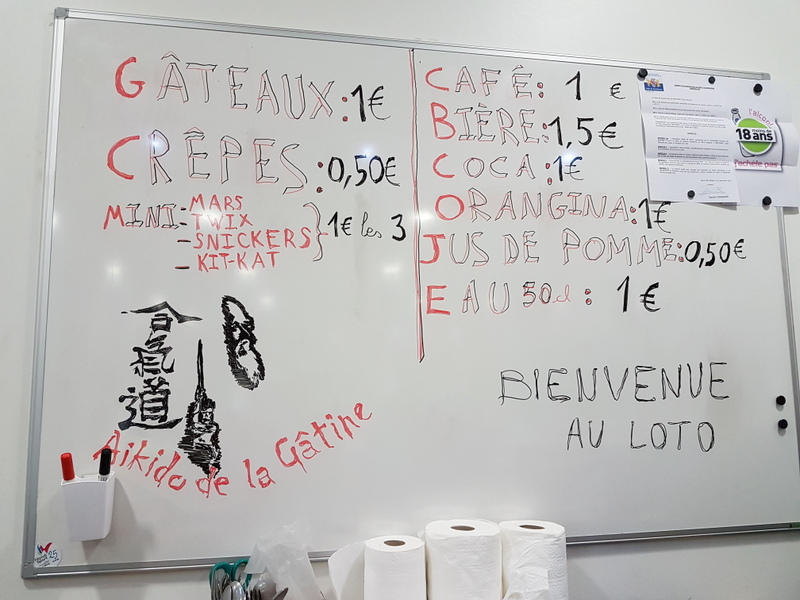 GÂTEAUX: 1€
CRÊPES: 0,50€
MINI - MARS
TWIX
- SNICKERS
- KIT-KAT
} 1€ les 3
合氣道
Aikido de la Gâtine
CAFÉ: 1 €
BIÈRE: 1,5€
COCA: 1€
ORANGINA: 1€
JUS DE POMME: 0,50€
EAU 50cl : 1€
BIENVENUE
AU LOTO
l'alcool
moins de
18 ans
s'achète pas